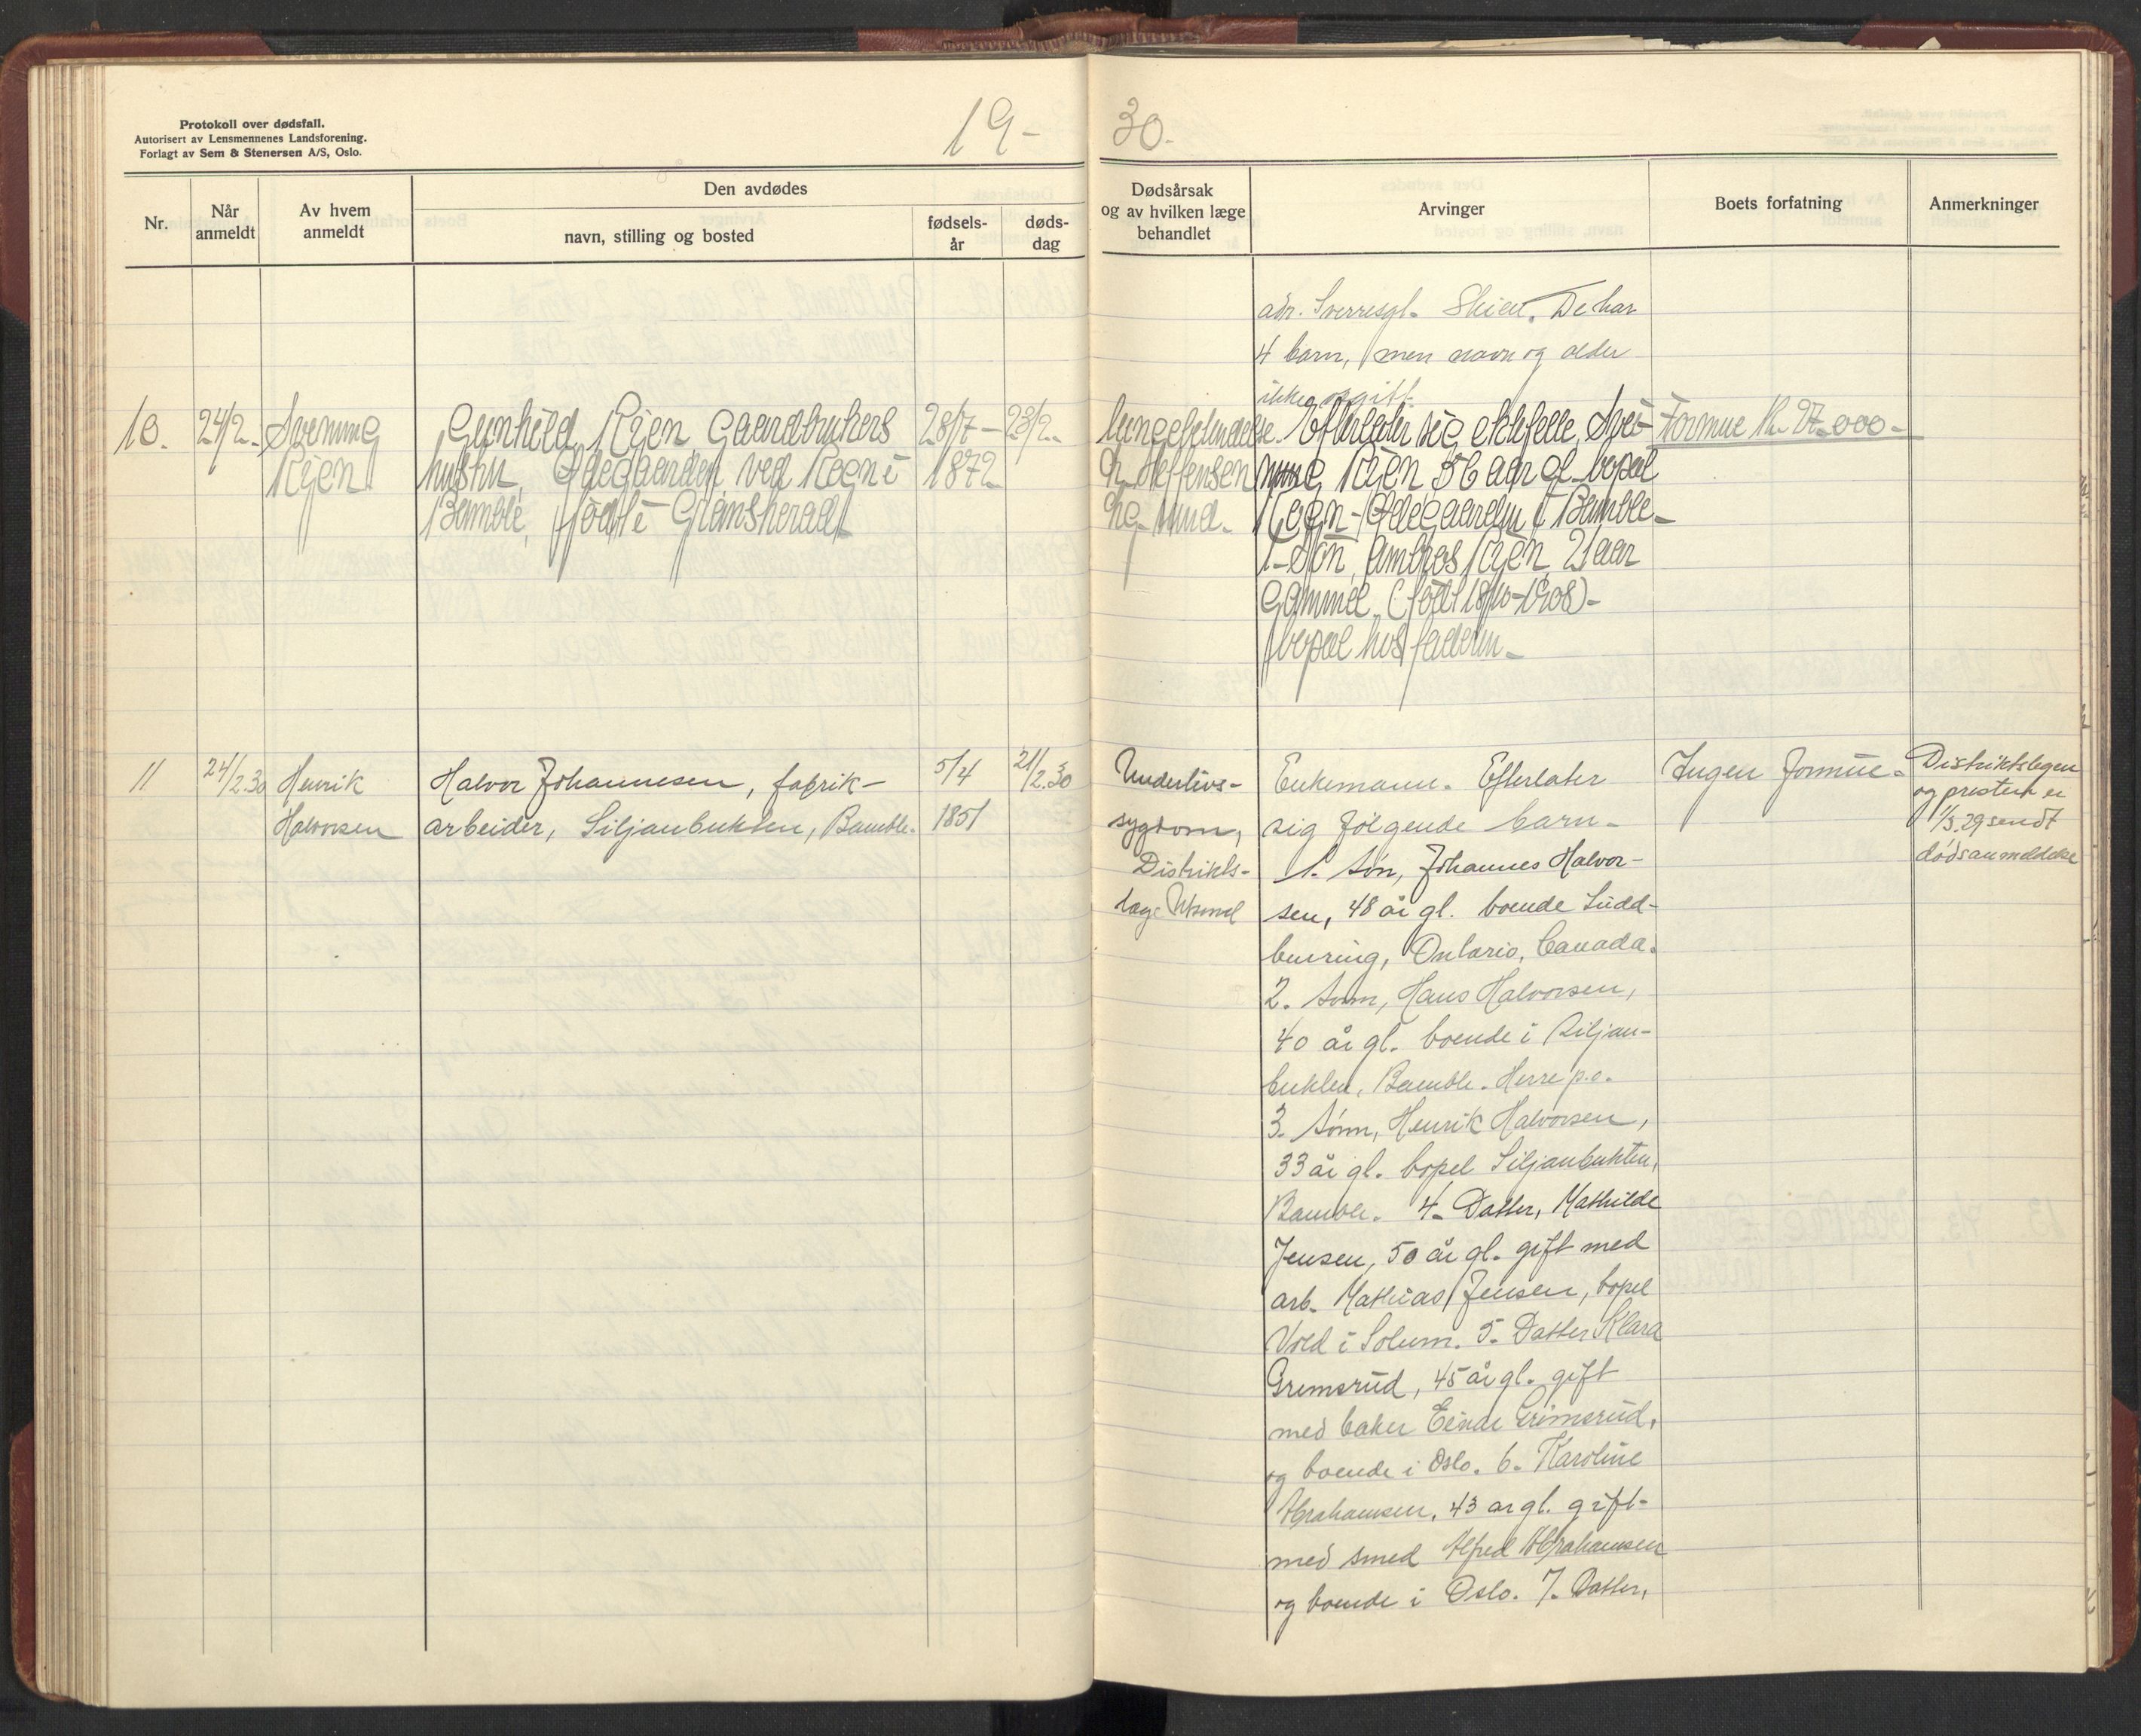 Protokoll over dødsfall.
Autorisert av Lensmennenes Landsforening.
Forlagt av Sem & Stenersen A/S, Oslo.
19-
30.
Nr.
Når anmeldt
Av hvem anmeldt
Den avdødes
navn, stilling og bosted
fødsels-
år
døds-
dag
Dødsårsak
og av hvilken læge
behandlet
Arvinger
Boets forfatning
Anmerkninger
adr. Sverresgt. Skien. De har
4 barn, men navn og alder
ikke opgitt.
10.
24/2-
Svenning
Rijen
Gunhild Rijen Gaardbrukers
hustru, Ødegaarden ved Rogn i
Bamble, født i Gramsherad
28/7-
1872
23/2-
lungebetendelse.
Dr. Steffensen

Efterlater sig ektefelle, Sven-
ning Rijen 56 aar gl. bopæl
Rogn-Ødegaarden i Bamble-
1- Søn, Ambros Rijen, 21 aar
gammel (født 18/10-1908)-
bopæl hos faderen-
Formue Kr. 27.000-
11
24/2.30
Henrik
Halvorsen
Halvor Johannesen, fabrik-
arbeider, Siljanbukten, Bamble.
5/4
1851
21/2.30
Underlivs-
sygdom,
Distrikts-
læge
Enkemann. Efterlater
sig følgende barn-
1. Søn, Johannes Halvor-
sen, 48 år gl. boende Sudd-
burring, Ontario, Canada.
2. Sønn, Hans Halvorsen,
40 år gl. boende i Siljan-
bukten, Bamble. Herre p.o.
3. Sønn, Henrik Halvorsen,
33 år gl. bopel Siljanbukten,
Bamble. 4- Datter, Mathilde
Jensen, 50 år gl. gift med
arb. Mathias Jensen, bopel
Vold i Solum. 5- Datter Klara
Gremsrud, 45 år gl. gift
med baker Einar Grimsrud,
og boende i Oslo. 6. Karoline
Abrahamsen, 43 ar gl. gift-
med smed Alfred Abrahamsen
og boende i Oslo. 7. Datter,
Ingen formue-
Distriktslegen
og presten er
1/3.29 sendt
dødsanmeldelse